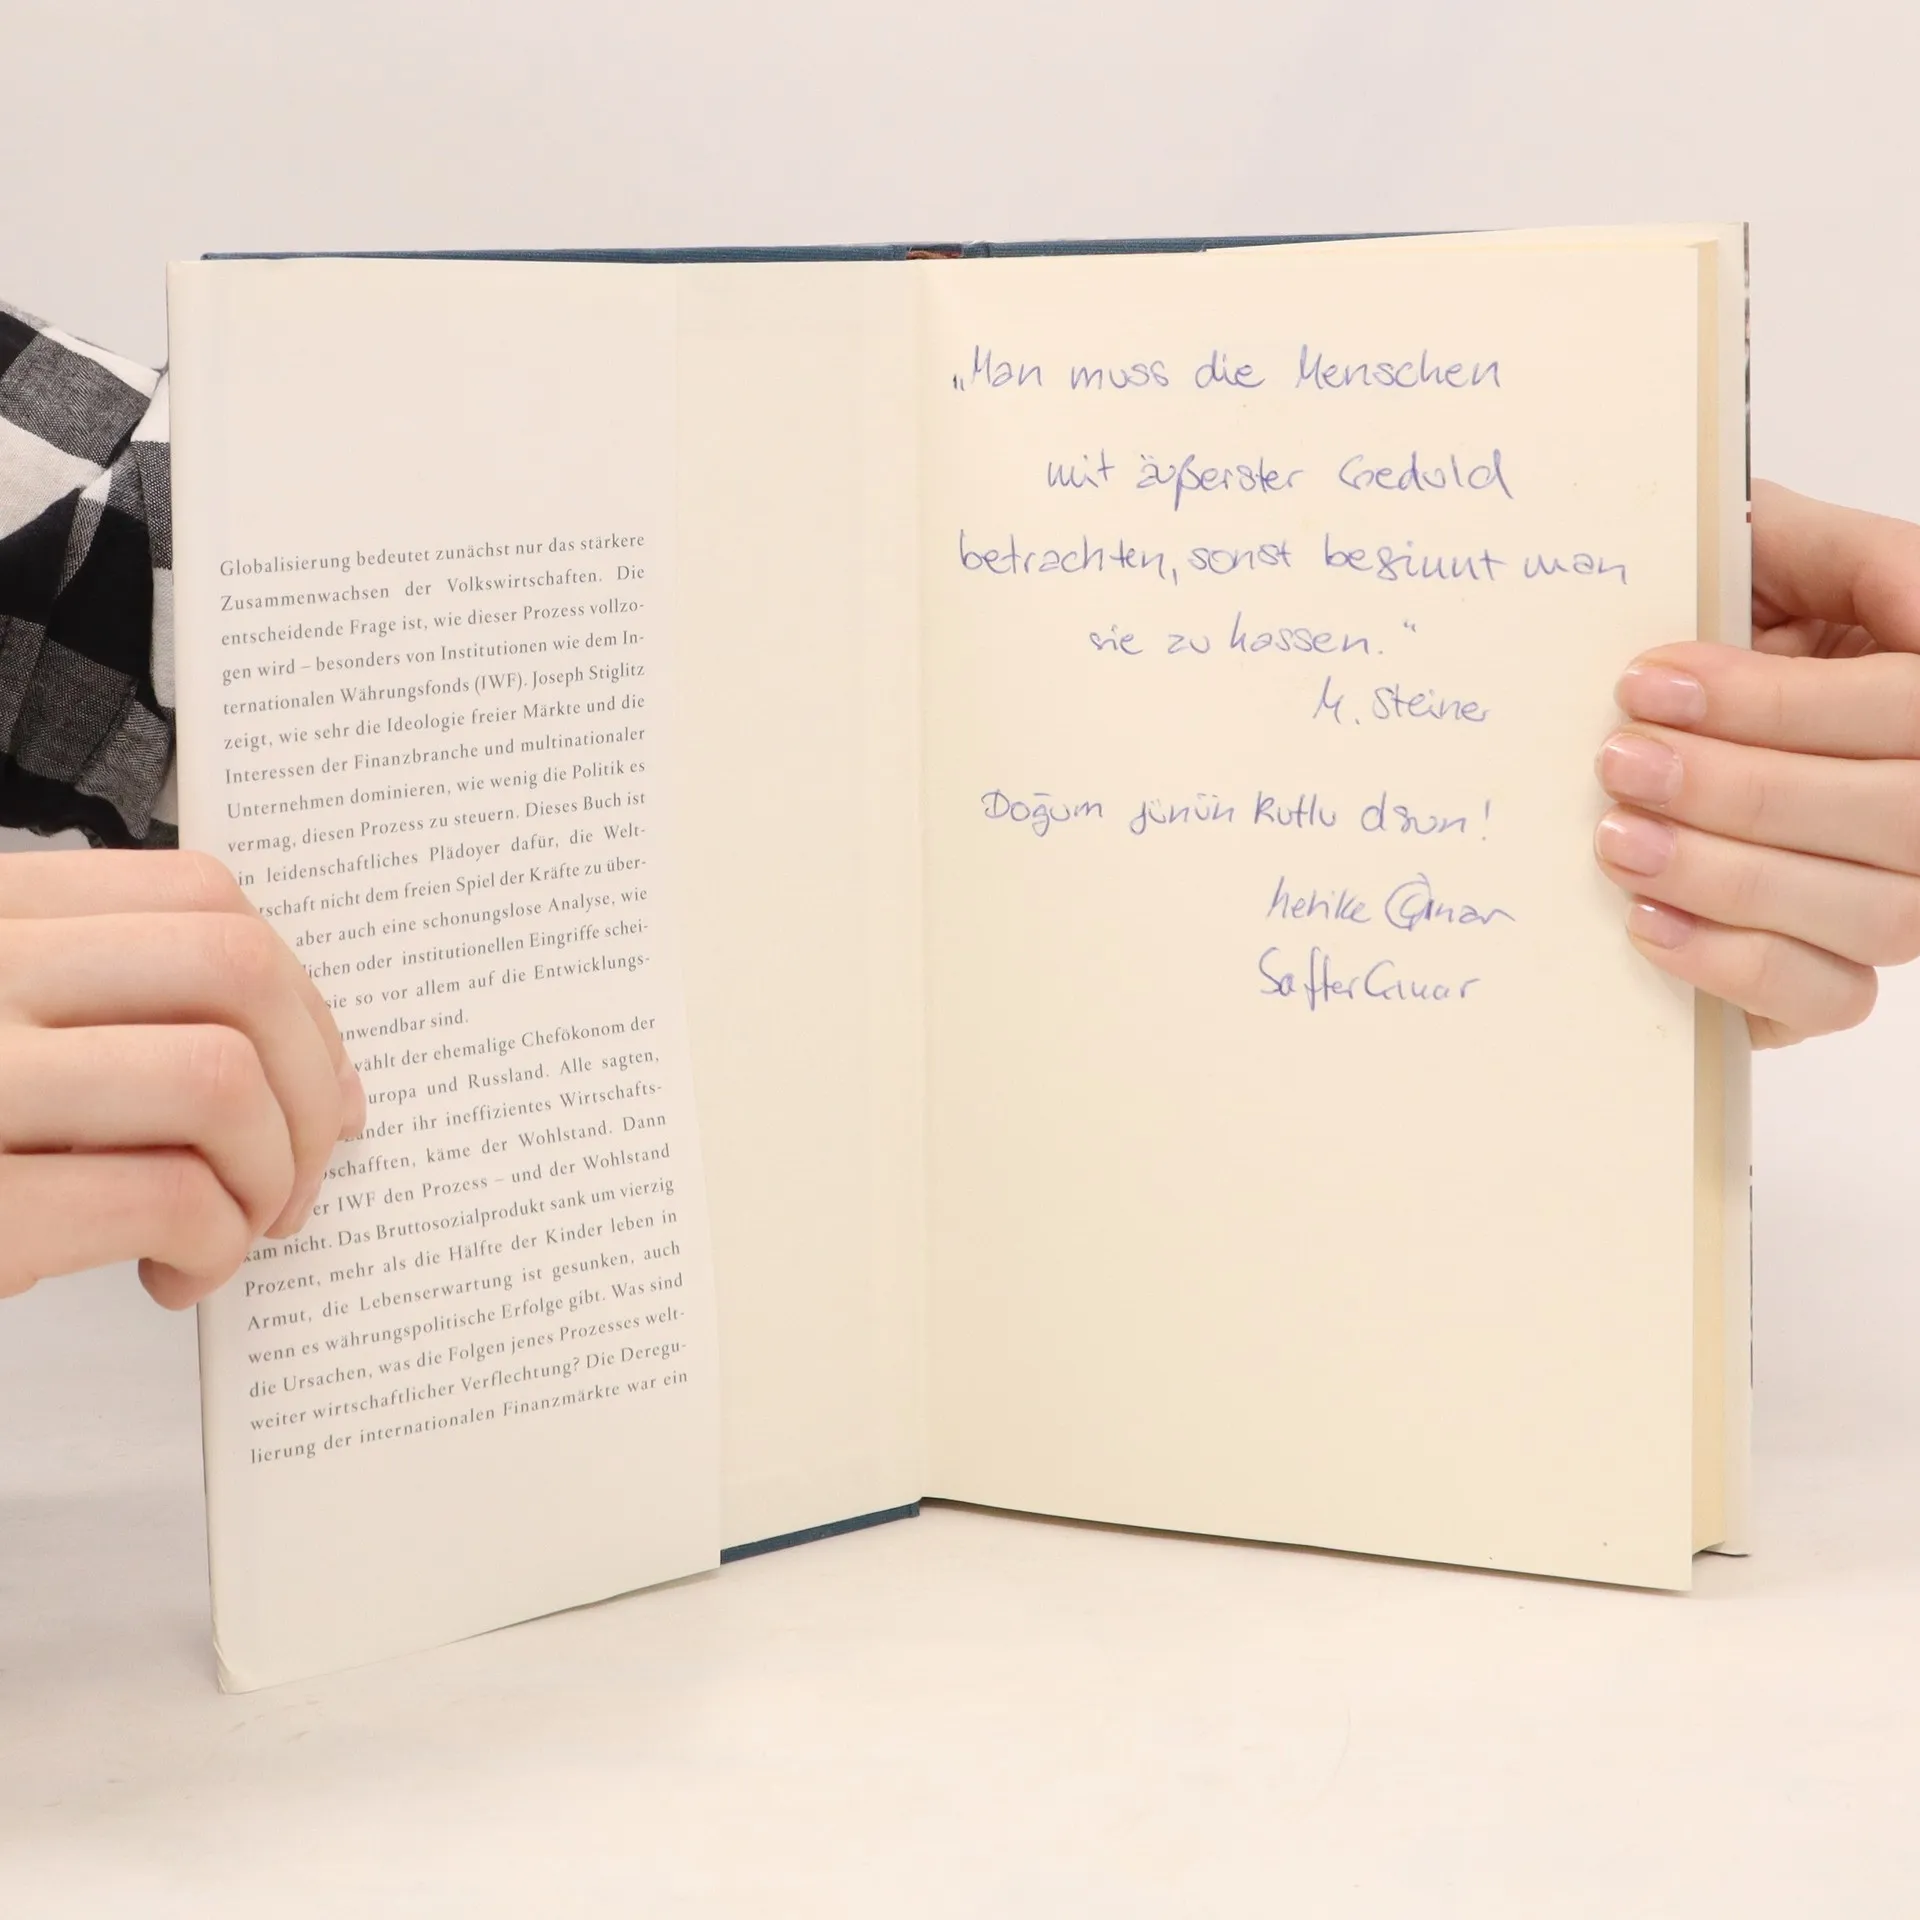 Globalisierung bedeutet zunächst nur das stärkere
Zusammenwachsen der Volkswirtschaften. Die
entscheidende Frage ist, wie dieser Prozess vollzo-
gen wird – besonders von Institutionen wie dem In-
ternationalen Währungsfonds (IWF). Joseph Stiglitz
zeigt, wie sehr die Ideologie freier Märkte und die
Interessen der Finanzbranche und multinationaler
Unternehmen dominieren, wie wenig die Politik es
vermag, diesen Prozess zu steuern. Dieses Buch ist
in leidenschaftliches Plädoyer dafür, die Welt-
rschaft nicht dem freien Spiel der Kräfte zu über-
aber auch eine schonungslose Analyse, wie
lichen oder institutionellen Eingriffe schei-
sie so vor allem auf die Entwicklungs-
anwendbar sind.
wählt der ehemalige Chefökonom der
uropa und Russland. Alle sagten,
änder ihr ineffizientes Wirtschafts-
schafften, käme der Wohlstand. Dann
er IWF den Prozess – und der Wohlstand
kam nicht. Das Bruttosozialprodukt sank um vierzig
Prozent, mehr als die Hälfte der Kinder leben in
Armut, die Lebenserwartung ist gesunken, auch
wenn es währungspolitische Erfolge gibt. Was sind
die Ursachen, was die Folgen jenes Prozesses welt-
weiter wirtschaftlicher Verflechtung? Die Deregu-
lierung der internationalen Finanzmärkte war ein
„Man muss die Menschen
mit äußerster Geduld
betrachten, sonst beginnt man
sie zu hassen."
M. Steiner
Doğum günün kutlu olsun!
Safter Çınar